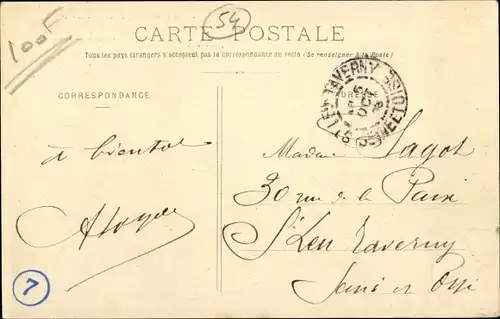 100F
54
CARTE POSTALE
Tous les pays étrangers n'acceptent pas la correspondance au recto (Se renseigner à la Poste)
CORRESPONDANCE
ADRESSE
ST LEU-TAVERNY SEINE ET OISE
à bientôt
Madame Lagot
30 rue de la Paix
St Leu Taverny
Seine et Oise
7